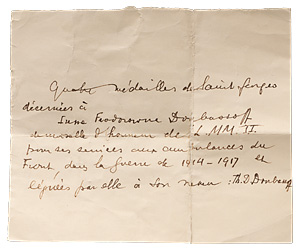 Quatre médailles de Saint-Georges
décernées à
Anne Feodorovna Doubassoff
demoiselle d'honneur de L. MM. II.
pour ses services aux ambulances du
Front, dans la guerre de 1914-1917 et
léguées par elle à son neveu :